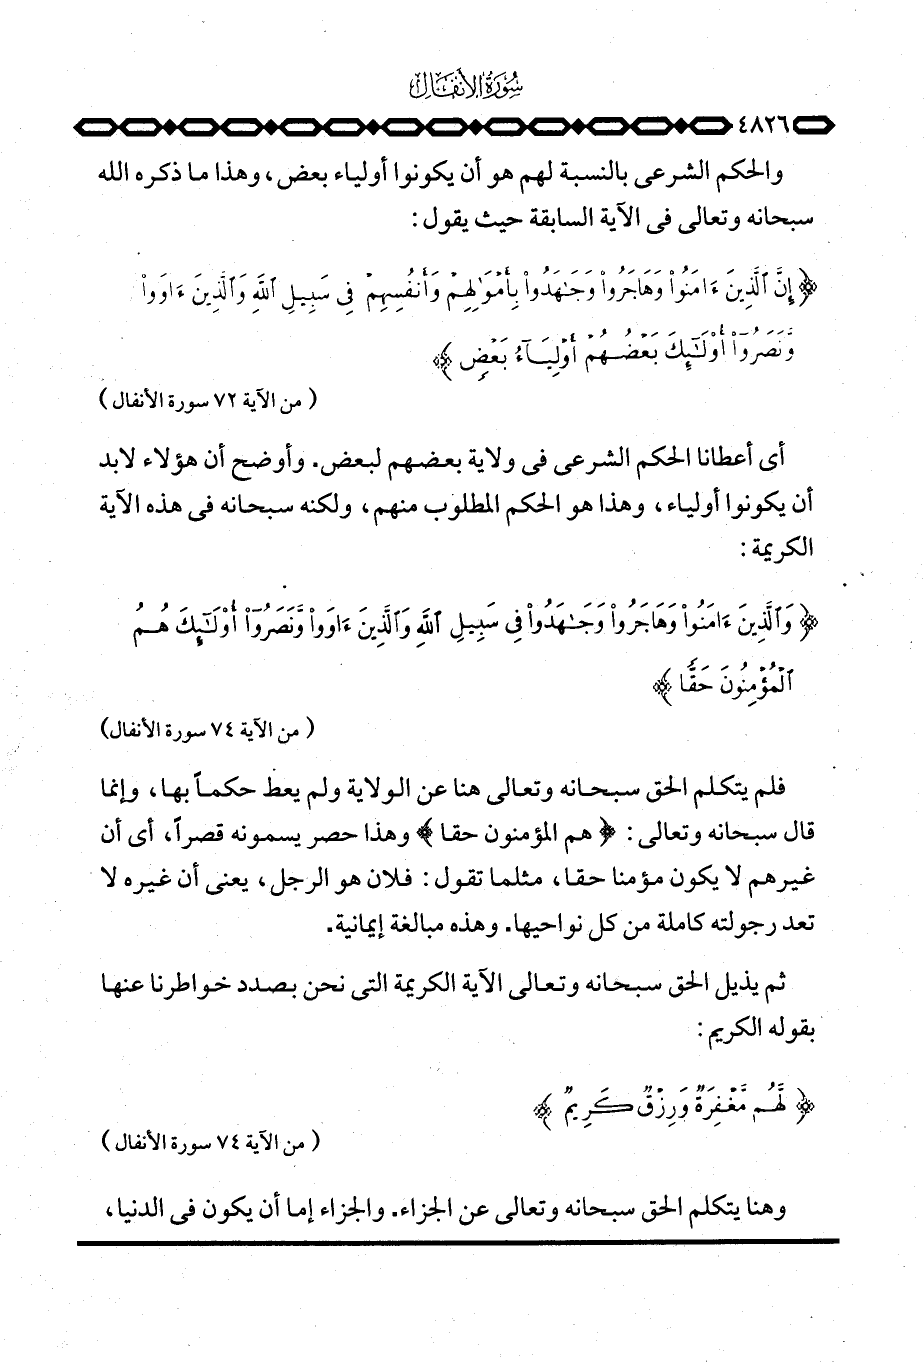 سُورَةُ الأَنفَال
٤٨٢٦
والحكم الشرعى بالنسبة لهم هو أن يكونوا أولياء بعض، وهذا ما ذكره الله
سبحانه وتعالى فى الآية السابقة حيث يقول :
﴿ إِنَّ ٱلَّذِينَ ءَامَنُوا۟ وَهَاجَرُوا۟ وَجَٰهَدُوا۟ بِأَمْوَٰلِهِمْ وَأَنفُسِهِمْ فِى سَبِيلِ ٱللَّهِ وَٱلَّذِينَ ءَاوَوا۟
وَّنَصَرُوٓا۟ أُو۟لَٰٓئِكَ بَعْضُهُمْ أَوْلِيَآءُ بَعْضٍ ﴾
( من الآية ٧٢ سورة الأنفال )
أى أعطانا الحكم الشرعى فى ولاية بعضهم لبعض. وأوضح أن هؤلاء لابد
أن يكونوا أولياء، وهذا هو الحكم المطلوب منهم، ولكنه سبحانه فى هذه الآية
الكريمة :
﴿ وَٱلَّذِينَ ءَامَنُوا۟ وَهَاجَرُوا۟ وَجَٰهَدُوا۟ فِى سَبِيلِ ٱللَّهِ وَٱلَّذِينَ ءَاوَوا۟ وَّنَصَرُوٓا۟ أُو۟لَٰٓئِكَ هُمُ
ٱلْمُؤْمِنُونَ حَقًّا ﴾
( من الآية ٧٤ سورة الأنفال)
فلم يتكلم الحق سبحانه وتعالى هنا عن الولاية ولم يعط حكماً بها، وإنما
قال سبحانه وتعالى : ﴿ هم المؤمنون حقا ﴾ وهذا حصر يسمونه قصراً، أى أن
غيرهم لا يكون مؤمنا حقا، مثلما تقول : فلان هو الرجل، يعنى أن غيره لا
تعد رجولته كاملة من كل نواحيها. وهذه مبالغة إيمانية.
ثم يذيل الحق سبحانه وتعالى الآية الكريمة التى نحن بصدد خواطرنا عنها
بقوله الكريم :
﴿ لَّهُم مَّغْفِرَةٌ وَرِزْقٌ كَرِيمٌ ﴾
( من الآية ٧٤ سورة الأنفال )
وهنا يتكلم الحق سبحانه وتعالى عن الجزاء. والجزاء إما أن يكون فى الدنيا،